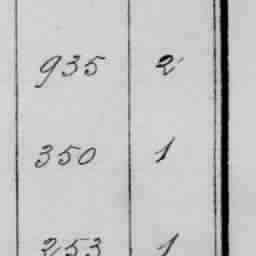 935 2
350 1
253 1